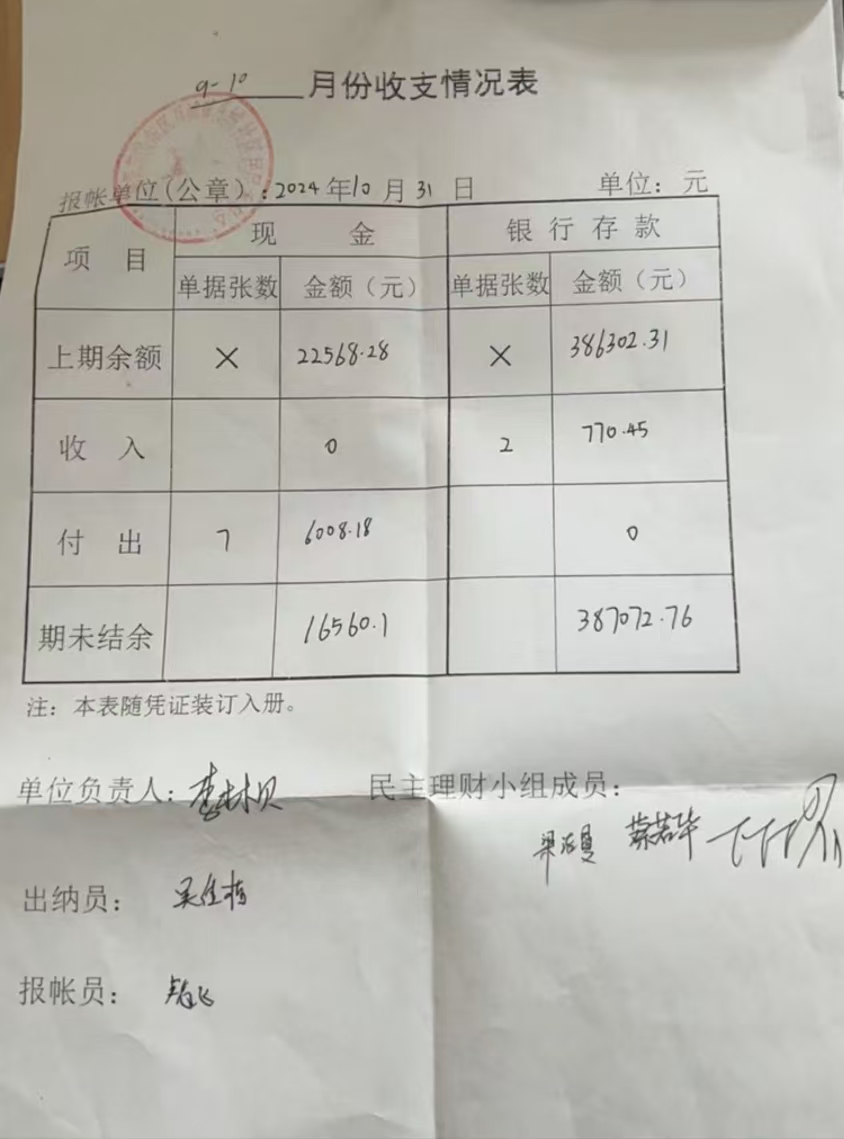 9-10 月份收支情况表
报帐单位(公章):2024年10月31日 单位:元
项目 现金 银行存款
单据张数 金额(元) 单据张数 金额(元)
上期余额 × 22568.28 × 386302.31
收入 0 2 770.45
付出 7 6008.18 0
期未结余 16560.1 387072.76
注:本表随凭证装订入册。
单位负责人:
民主理财小组成员:
蔡若华
出纳员:
报帐员: